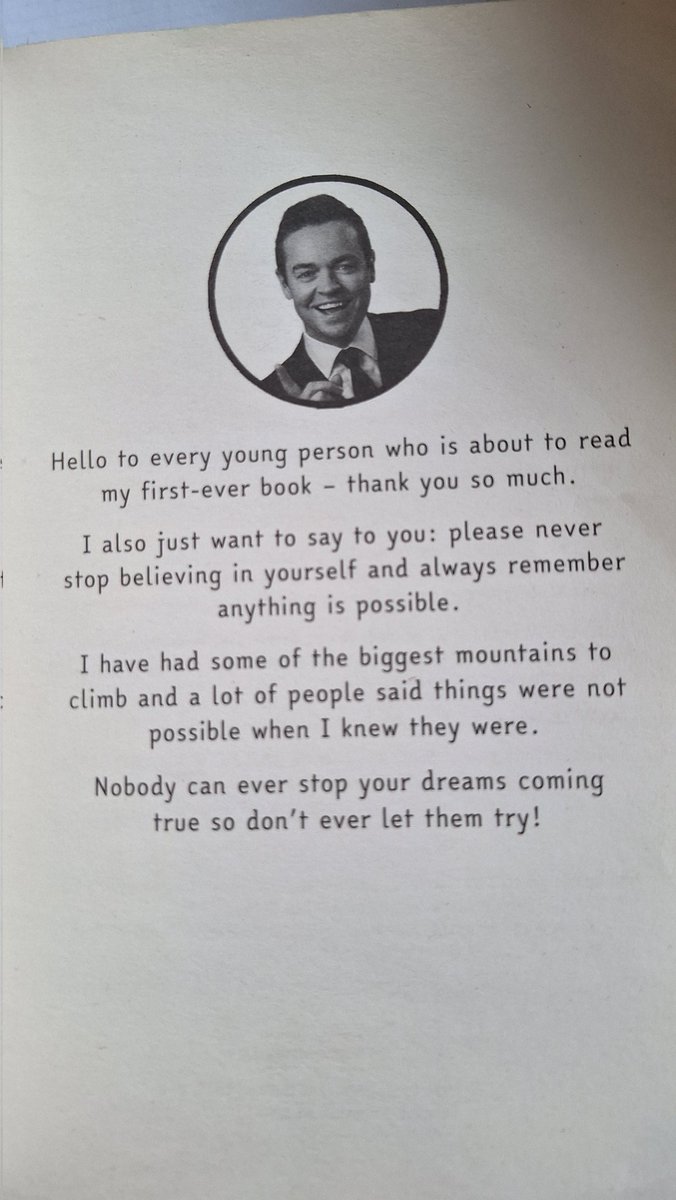 Hello to every young person who is about to read
my first-ever book – thank you so much.
I also just want to say to you: please never
stop believing in yourself and always remember
anything is possible.
I have had some of the biggest mountains to
climb and a lot of people said things were not
possible when I knew they were.
Nobody can ever stop your dreams coming
true so don't ever let them try!